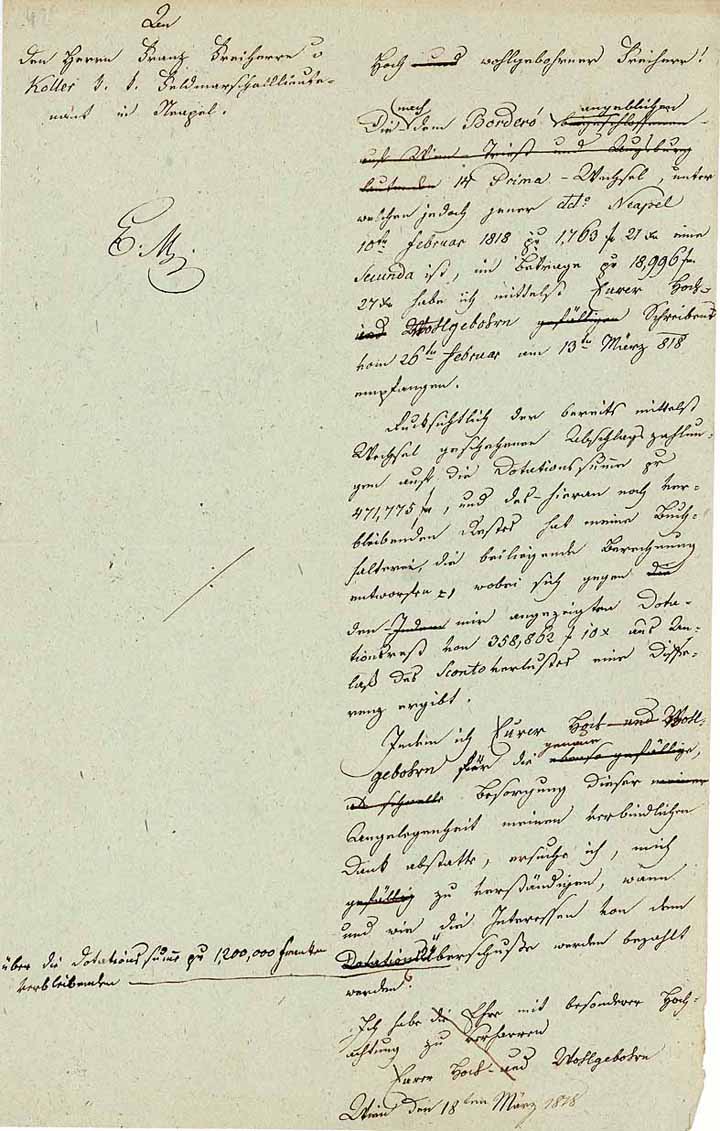 An
den Herrn Franz Freiherrn v
Koller K. K. Feldmarschallieute-
nant in Neapel.
E. M.
Hoch und wohlgebohrner Freiherr!
Die nach dem Borderó angeblichen angeschlossenen
auf Wien Triest und Augsburg
lautende 14 Prima-Wechsel, unter
welchen jedoch jener ddo Neapel
10ten Februar 1818 pr 1,763 f 21 xr eine
Secunda ist, im Betrage pr 18,996 f
27 xr habe ich mittelst Eurer Hoch-
und Wohlgebohrn gefälligen Schreibens
vom 26ten Februar am 13ten März 818
empfangen.
Rücksichtlich der bereits mittelst
Wechsel geschehenen Abschlagszahlun-
gen auf die Dotationssumme pr
471,775 f, und des hieran noch ver-
bleibenden Restes hat meine Buch-
halterei, die beiliegende Berechnung
entworfen, wobei sich gegen die
den Indem mir angezeigten Dota-
tionsrest von 358,862 f 10 x aus An-
laß des Scontoverlustes eine Diffe-
renz ergibt.
Indem ich Eurer Hoch- und Wohl-
gebohrn für die genaue ebenso gefällige,
als schnelle Besorgung dieser meiner
Angelegenheit meinen verbindlichen
Dank abstatte, ersuche ich, mich
gefällig zu verständigen, wann
und wie die Interessen von dem
über die Dotationssumme pr 1,200,000 Franken
verbleibenden
Dotationsüberschusse werden bezahlt
werden.
Ich habe die Ehre mit besonderer Hoch-
achtung zu verharren
Eurer Hoch- und Wohlgebohrn
Wien den 18ten März 1818